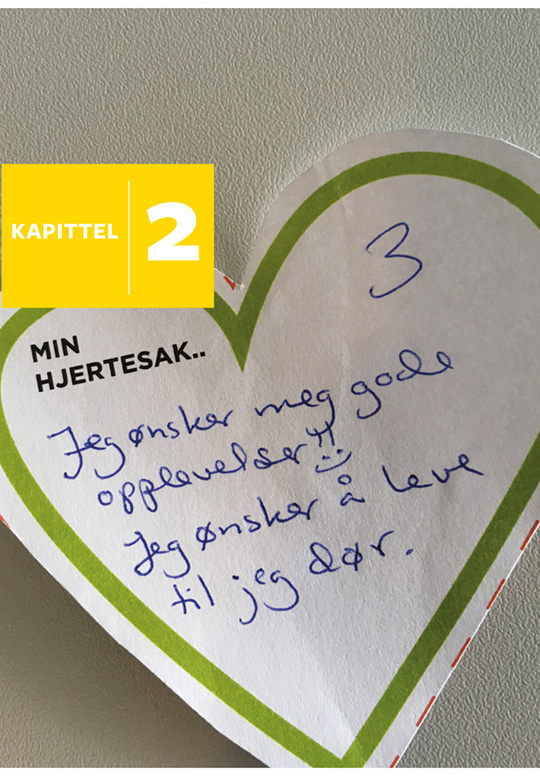 KAPITTEL 2
3
MIN
HJERTESAK..
Jeg ønsker meg gode
opplevelser!!
Jeg ønsker å leve
til jeg dør.